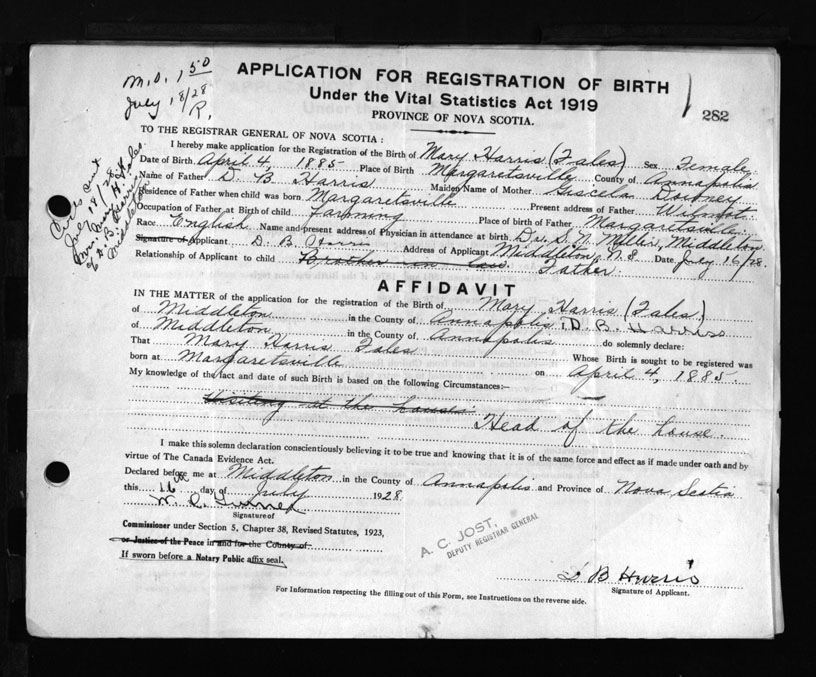 M.O. 1 50
July 18/28
R.
APPLICATION FOR REGISTRATION OF BIRTH
Under the Vital Statistics Act 1919
PROVINCE OF NOVA SCOTIA.
282
TO THE REGISTRAR GENERAL OF NOVA SCOTIA :
I hereby make application for the Registration of the Birth of Mary Harris (Fales) Sex Female
Date of Birth April 4, 1885 Place of Birth Margaretsville County of Annapolis
Name of Father D. B. Harris Maiden Name of Mother Downey
Residence of Father when child was born Margaretsville Present address of Father Wilmot
Occupation of Father at Birth of child Farming Place of birth of Father Margaretsville
Race English Name and present address of Physician in attendance at birth Dr. S. N. Miller, Middleton
Signature of Applicant D. B. Harris Address of Applicant Middleton, N.S. Date July 16/28.
Relationship of Applicant to child Brother in law Father.
July 18/28
Middleton
AFFIDAVIT
IN THE MATTER of the application for the registration of the Birth of Mary Harris (Fales)
of Middleton in the County of Annapolis I, D. B. Harris
of Middleton in the County of Annapolis do solemnly declare:
That Mary Harris Fales Whose Birth is sought to be registered was
born at Margaretsville on April 4, 1885.
My knowledge of the fact and date of such Birth is based on the following Circumstances:—
Visiting at the house
Head of the house.
I make this solemn declaration conscientiously believing it to be true and knowing that it is of the same force and effect as if made under oath and by
virtue of The Canada Evidence Act.
Declared before me at Middleton in the County of Annapolis and Province of Nova Scotia
this 16th day of July 1928
Signature of
Commissioner under Section 5, Chapter 38, Revised Statutes, 1923,
or Justice of the Peace in and for the County of
If sworn before a Notary Public affix seal.
A. C. JOST,
DEPUTY REGISTRAR GENERAL
D B Harris
Signature of Applicant.
For Information respecting the filling out of this Form, see Instructions on the reverse side.